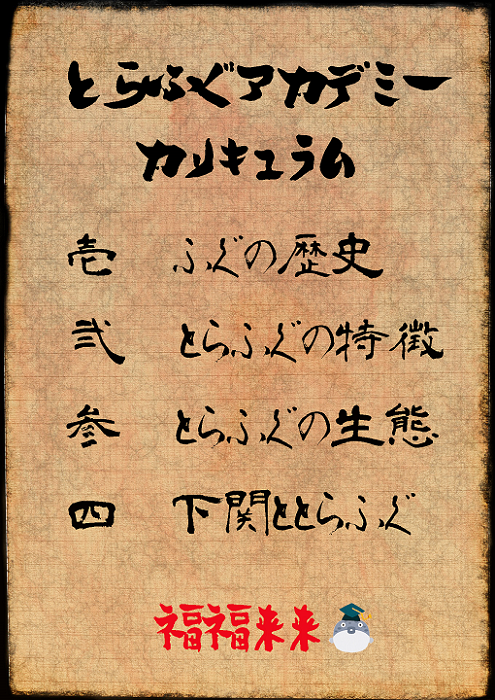 とらふぐアカデミー
カリキュラム
壱 ふぐの歴史
弐 とらふぐの特徴
参 とらふぐの生態
四 下関ととらふぐ
福福来来